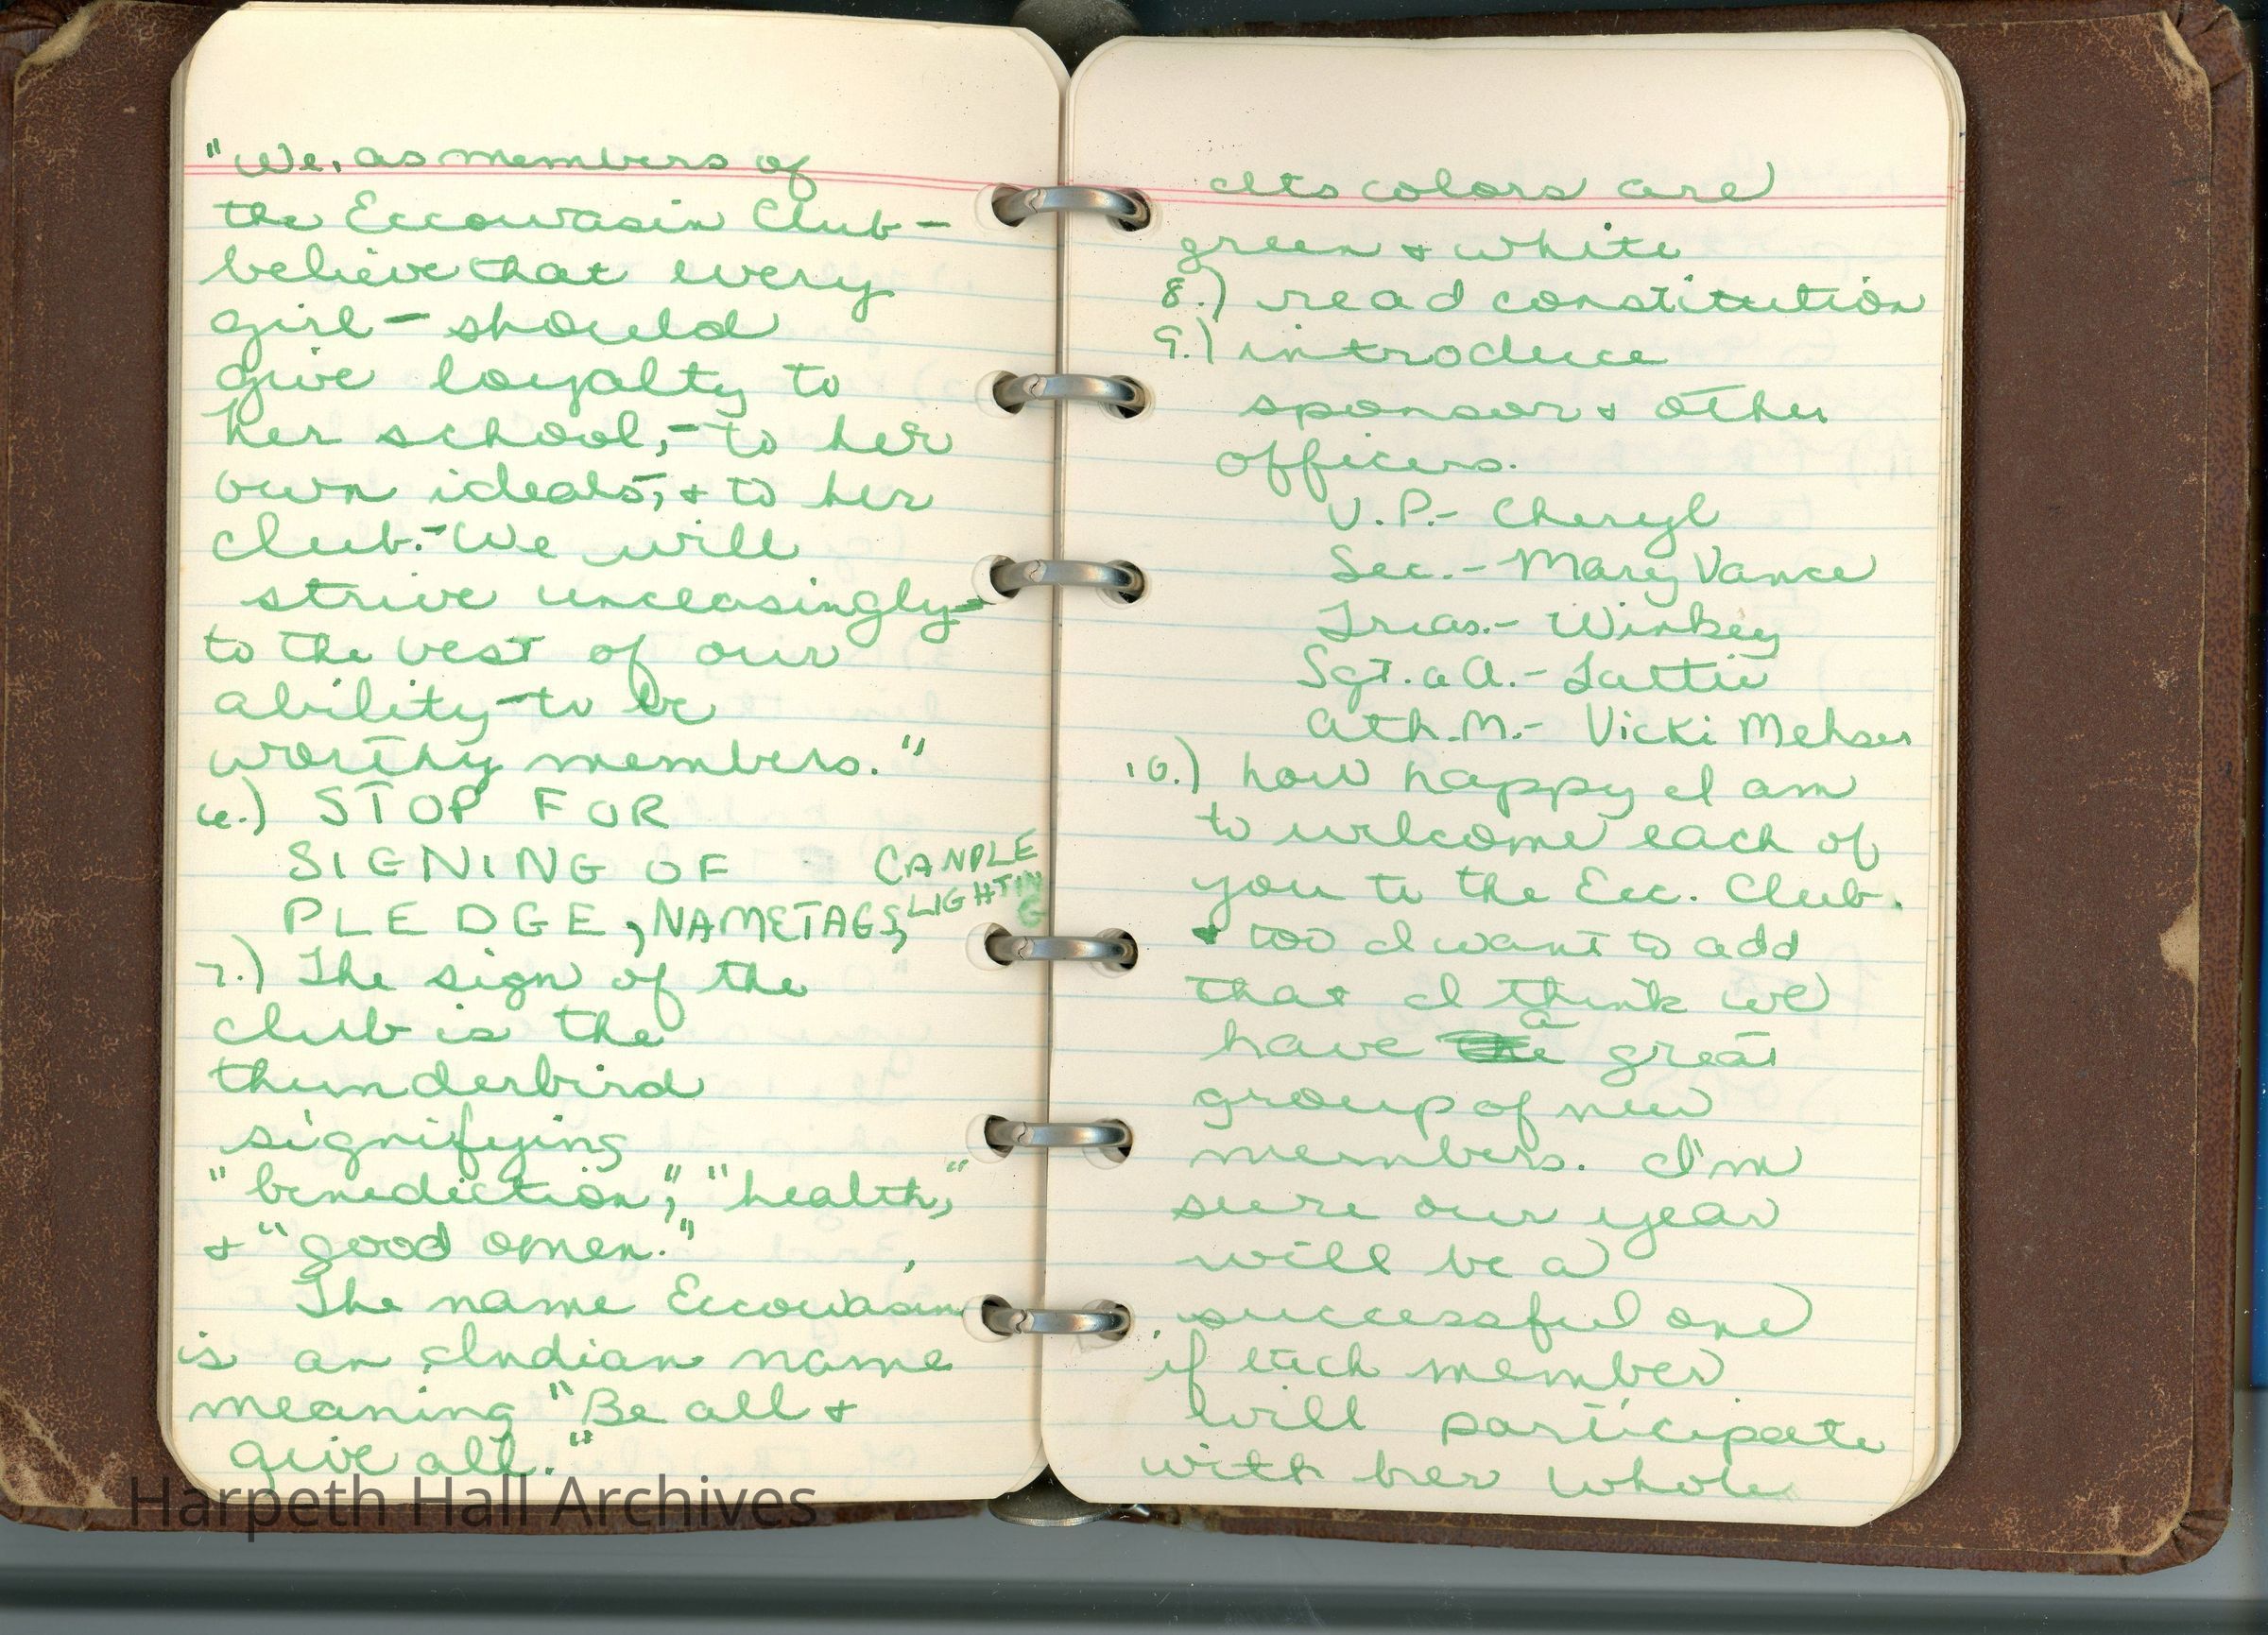 "We, as members of
the Eccowasin Club–
believe that every
girl – should
give loyalty to
her school, – to her
own ideals, – & to her
club. – We will
strive unceasingly –
to the best of our
ability – to be
worthy members."
6.) STOP FOR
SIGNING OF
PLEDGE, NAMETAGS, CANDLE
LIGHTING
7.) The sign of the
club is the
thunderbird
signifying
"benediction," "health,"
& "good omen."
The name Eccowasin
is an Indian name
meaning "Be all &
give all."
Its colors are
green & white
8.) read constitution
9.) introduce
sponsor & other
officers.
V.P. – Cheryl
Sec. – Mary Vance
Treas. – Winkey
Sgt. a A. –
Ath. M. – Vicki
10.) how happy I am
to welcome each of
you to the Ecc. Club.
& too I want to add
that I think we
have a great
group of new
members. I'm
sure our year
will be a
successful one
if each member
will participate
with her whole
Harpeth Hall Archives